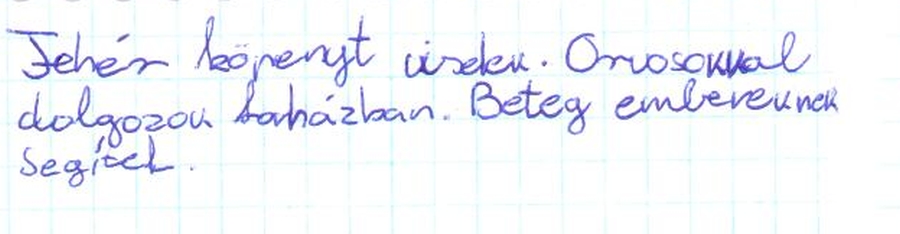 Fehér köpenyt viselek. Orvosokkal
dolgozok korházban. Beteg embereknek
segítek.